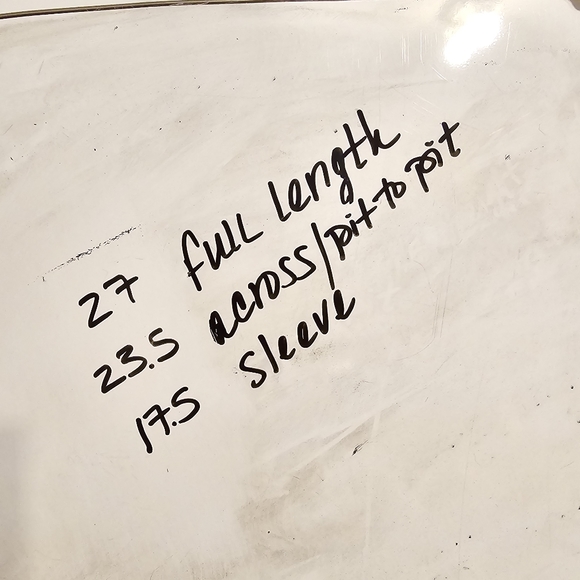 27 full length
23.5 across/pit to pit
17.5 sleeve